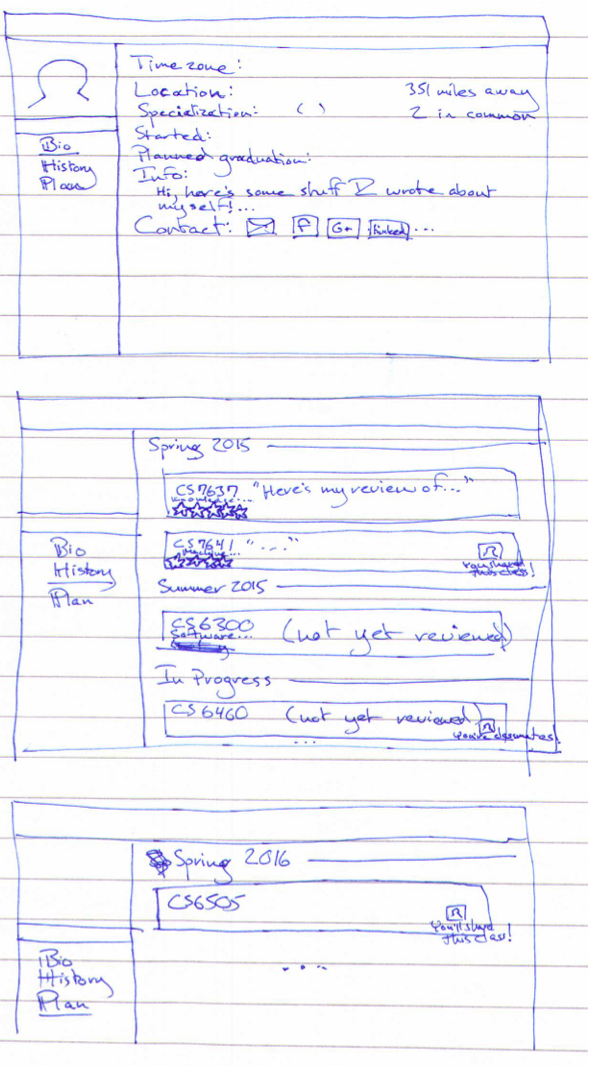 Time zone:
Location: 351 miles away
Specialization: ( ) 2 in common
Started:
Planned graduation:
Info:
Hi, here's some stuff I wrote about
myself!...
Contact: f G+ linked ...
Bio
History
Plan
Spring 2015
CS7637 "Here's my review of..."
Knowledge...
CS7641 "..."
You shared
this class!
Bio
History
Plan
Summer 2015
CS6300 (not yet reviewed)
Software...
In Progress
CS6460 (not yet reviewed)
You're classmates!
...
Spring 2016
CS6505
You'll share
this class!
...
Bio
History
Plan